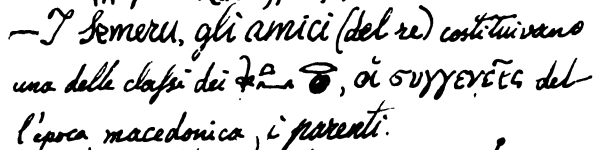 — I Semeru, gli amici (del re) costituivano
una delle classi dei , οἱ συγγενεῖς del
l'epoca macedonica, i parenti.